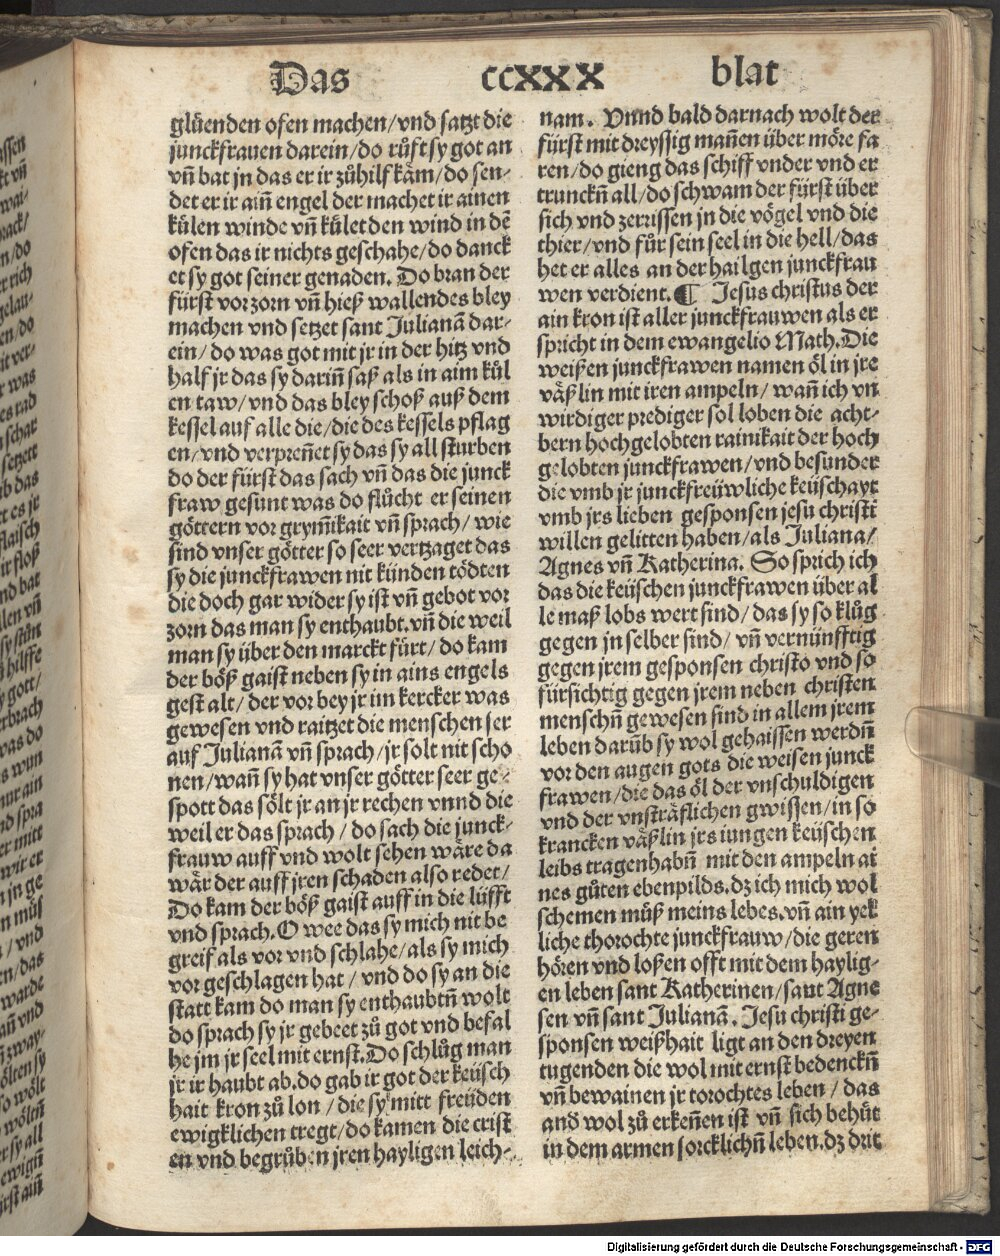 Das ccxxx blat
glüenden ofen machen/vnd satzt die
junckfrauen darein/do růft sy got an
vñ bat jn das er ir zůhilf käm/do sen-
det er ir ainñ engel der machet ir ainen
külen winde vñ kület den wind in dē
ofen das ir nichts geschahe/do danck
et sy got seiner genaden. Do bran der
fürst vor zorn vñ hieß wallendes bley
machen vnd setzet sant Julianā dar-
ein/do was got mit jr in der hitz vnd
half jr das sy dariñ saß als in aim kül
en taw/vnd das bley schoß auß dem
kessel auf alle die/die des kessels pflag
en/vnd verpreñet sy das sy all sturben
do der fürst das sach vñ das die junck
fraw gesunt was do flůcht er seinen
göttern vor grym̃ikait vñ sprach/wie
sind vnser götter so seer vertzaget das
sy die junckfrawen nit künden tödten
die doch gar wider sy ist vñ gebot vor
zorn das man sy enthaubt.vñ die weil
man sy über den marckt fürt/do kam
der böß gaist neben sy in ains engels
gestalt/der vor bey jr im kercker was
gewesen vnd raitzet die menschen ser
auf Julianā vñ sprach/jr solt nit scho
nen/wañ sy hat vnser götter seer ge-
spott das sölt jr an jr rechen vnnd die
weil er das sprach/do sach die junck-
frauw auff vnd wolt sehen wäre da
wär der auff jren schaden also redet/
Do kam der böß gaist auff in die lüfft
vnd sprach.O wee das sy mich nit be
greif als vor vnd schlahe/als sy mich
vor geschlagen hat/vnd do sy an die
statt kam do man sy enthaubtñ wolt
do sprach sy jr gebeet zů got vnd befal
he jm jr seel mit ernst.Do schlůg man
jr ir haubt ab.do gab ir got der keüsch
hait kron zů lon/die sy mitt freüden
ewigklichen tregt/do kamen die crist
en vnd begrůben jren hayligen leich-
nam. Vnnd bald darnach wolt der
fürst mit dreyssig mañen über möre fa
ren/do gieng das schiff vnder vnd er
trunckñ all/do schwam der fürst über
sich vnd zerrissen jn die vögel vnd die
thier/vnd fůr sein seel in die hell/das
het er alles an der hailgen junckfrau
wen verdient.¶ Jesus christus der
ain kron ist aller junckfrauwen als er
spricht in dem ewangelio Math.Die
weißen junckfrawen namen öl in jre
väßlin mit iren ampeln/wañ ich vn
wirdiger prediger sol loben die acht-
bern hochgelobten rainikait der hoch
gelobten junckfrawen/vnd besunder
die vmb jr junckfreüwliche keüschayt
vmb jrs lieben gesponsen jesu christi
willen gelitten haben/als Juliana/
Agnes vñ Katherina. So sprich ich
das die keüschen junckfrawen über al
le maß lobs wert sind/das sy so klůg
gegen jn selber sind/vñ vernünfftig
gegen jrem gesponsen christo vnd so
fürsichtig gegen jrem neben christen
menschñ gewesen sind in allem jrem
leben darüb sy wol gehaissen werdñ
vor den augen gots die weisen junck
frawen/die das öl der vnschuldigen
vnd der vnsträflichen gwissen/in so
krancken väßlin jrs iungen keüschen
leibs tragenhabñ mit den ampeln ai
nes gůten ebenpilds.dz ich mich wol
schemen můß meins lebes.vñ ain yek
liche thorochte junckfrauw/die geren
hören vnd loßen offt mit dem haylig-
en leben sant Katherinen/sant Agne
sen vñ sant Julianā. Jesu christi ge-
sponsen weißhait ligt an den dreyen
tugenden die wol mit ernst bedenckñ
vñ bewainen jr torochtes leben/das
and̄ wol zů erkeñen ist vñ sich behůt
in dem armen sorcklichñ leben.dz drit
Digitalisierung gefördert durch die Deutsche Forschungsgemeinschaft - DFG